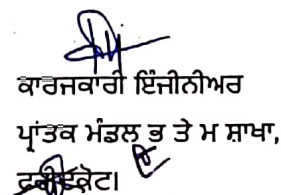 ਕਾਰਜਕਾਰੀ ਇੰਜੀਨੀਅਰ
ਪ੍ਰਾਂਤਕ ਮੰਡਲ ਭ ਤੇ ਮ ਸ਼ਾਖਾ,
ਫ਼ਰੀਦਕੋਟ।